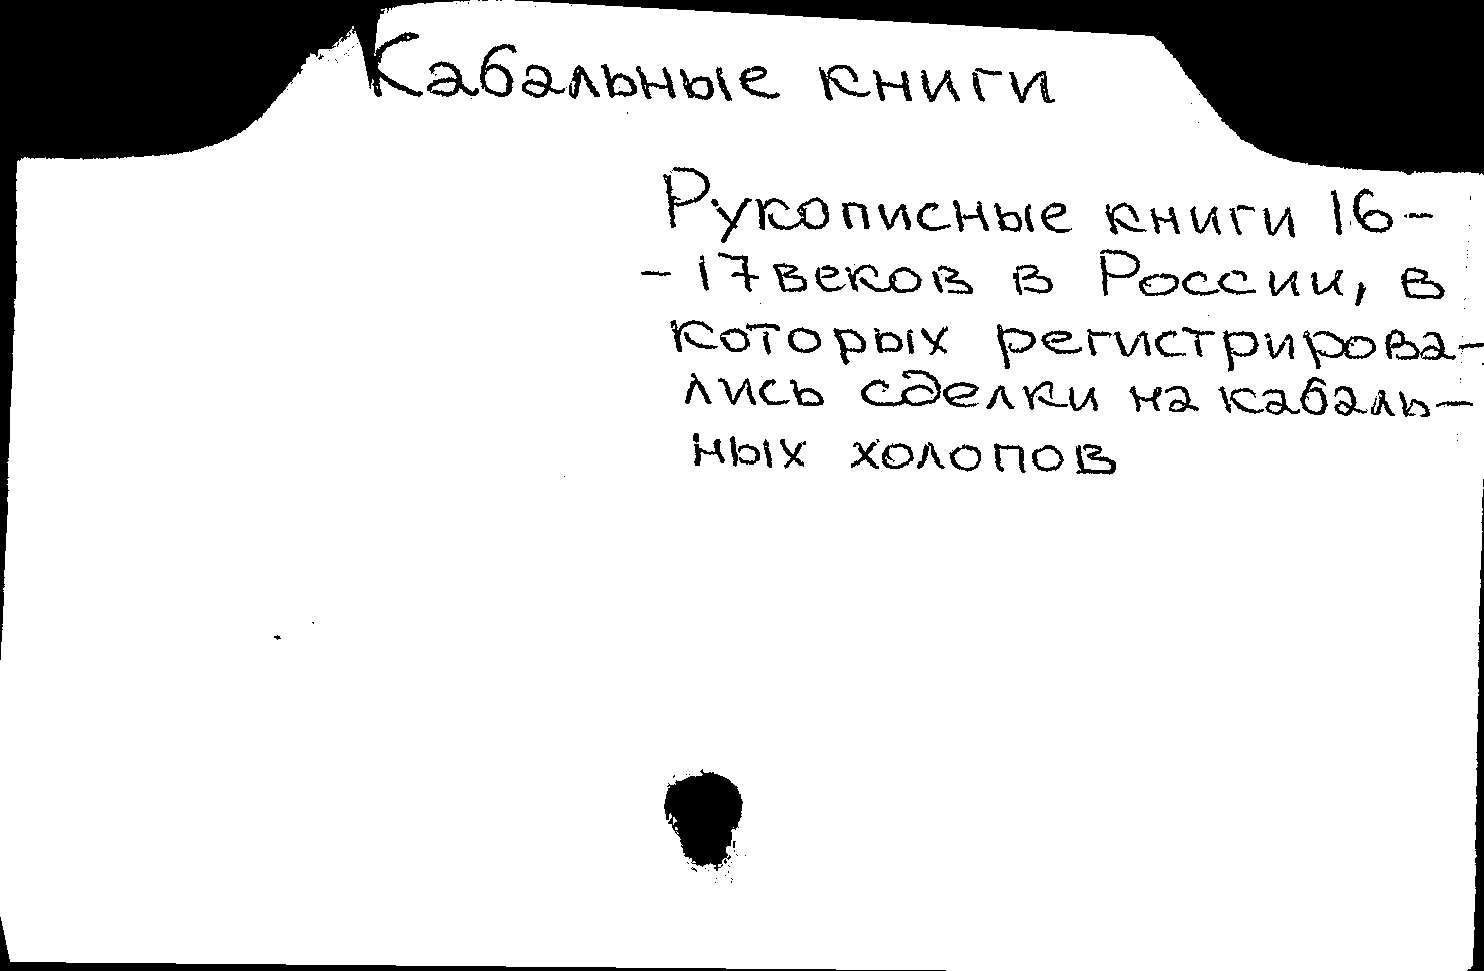 Кабальные книги
Рукописные книги 16-
- 17 веков в России, в
которых регистрирова-
лись сделки на кабаль-
ных холопов